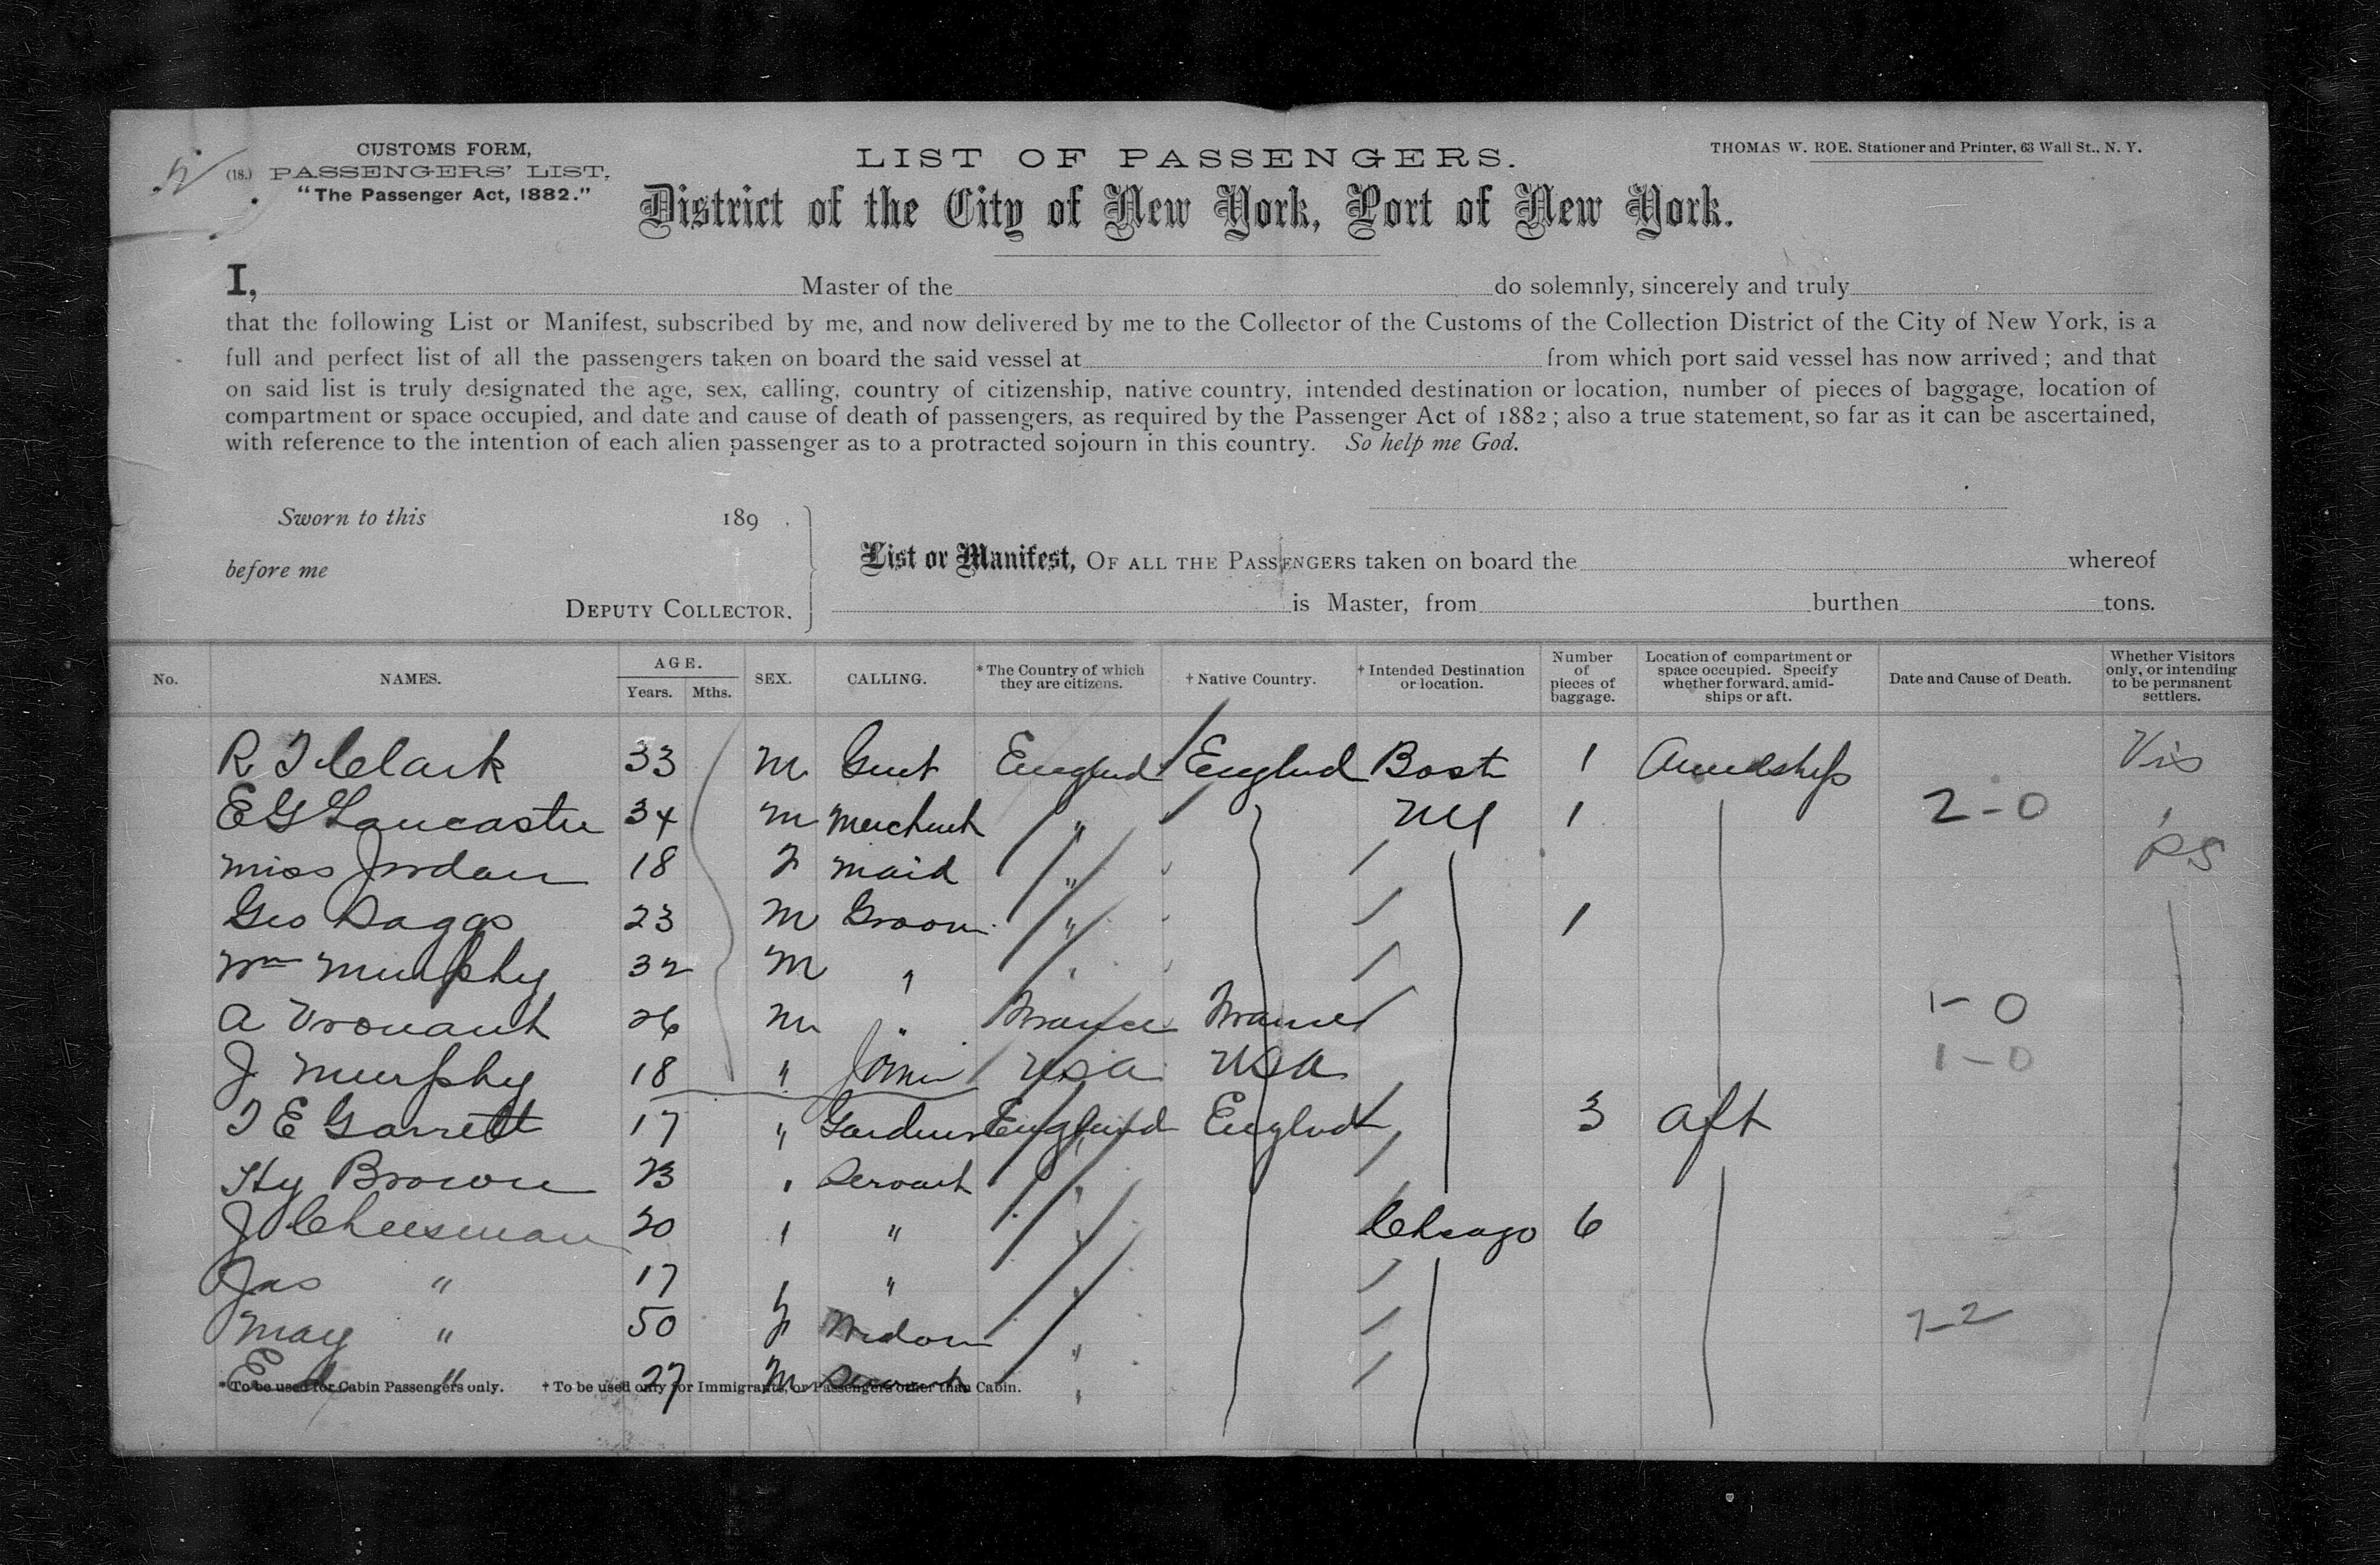 CUSTOMS FORM,
(18.) PASSENGERS' LIST,
"The Passenger Act, 1882."
LIST OF PASSENGERS.
THOMAS W. ROE. Stationer and Printer, 63 Wall St., N. Y.
District of the City of New York, Port of New York.
I, Master of the do solemnly, sincerely and truly
that the following List or Manifest, subscribed by me, and now delivered by me to the Collector of the Customs of the Collection District of the City of New York, is a
full and perfect list of all the passengers taken on board the said vessel at from which port said vessel has now arrived; and that
on said list is truly designated the age, sex, calling, country of citizenship, native country, intended destination or location, number of pieces of baggage, location of
compartment or space occupied, and date and cause of death of passengers, as required by the Passenger Act of 1882; also a true statement, so far as it can be ascertained,
with reference to the intention of each alien passenger as to a protracted sojourn in this country. So help me God.
Sworn to this 189 .
before me
DEPUTY COLLECTOR.
List or Manifest, OF ALL THE PASSENGERS taken on board the whereof
is Master, from burthen tons.
No. NAMES. AGE. Years. Mths. SEX. CALLING. * The Country of which they are citizens. † Native Country. † Intended Destination or location. Number of pieces of baggage. Location of compartment or space occupied. Specify whether forward, amidships or aft. Date and Cause of Death. Whether Visitors only, or intending to be permanent settlers.
R T Clark 33 M Gent England England Bost 1 Amidships Vis
E G Lancaster 34 M Merchant " NY 1 2-0 '
Miss Jordan 18 F Maid " PS
Geo Daggs 23 M Groom " 1
Wm Murphy 32 M "
A 26 M " France France 1-0
J Murphy 18 " USA USA 1-0
T E Garrett 17 " Gardner England England 3 Aft
Hy Brown 23 " Servant "
J Cheesman 20 " " " Chicago 6
Jas " 17 " " "
May " 50 F Widow " 7-2
E " 27 M Servant "
* To be used for Cabin Passengers only. † To be used only for Immigrants, or Passengers other than Cabin.